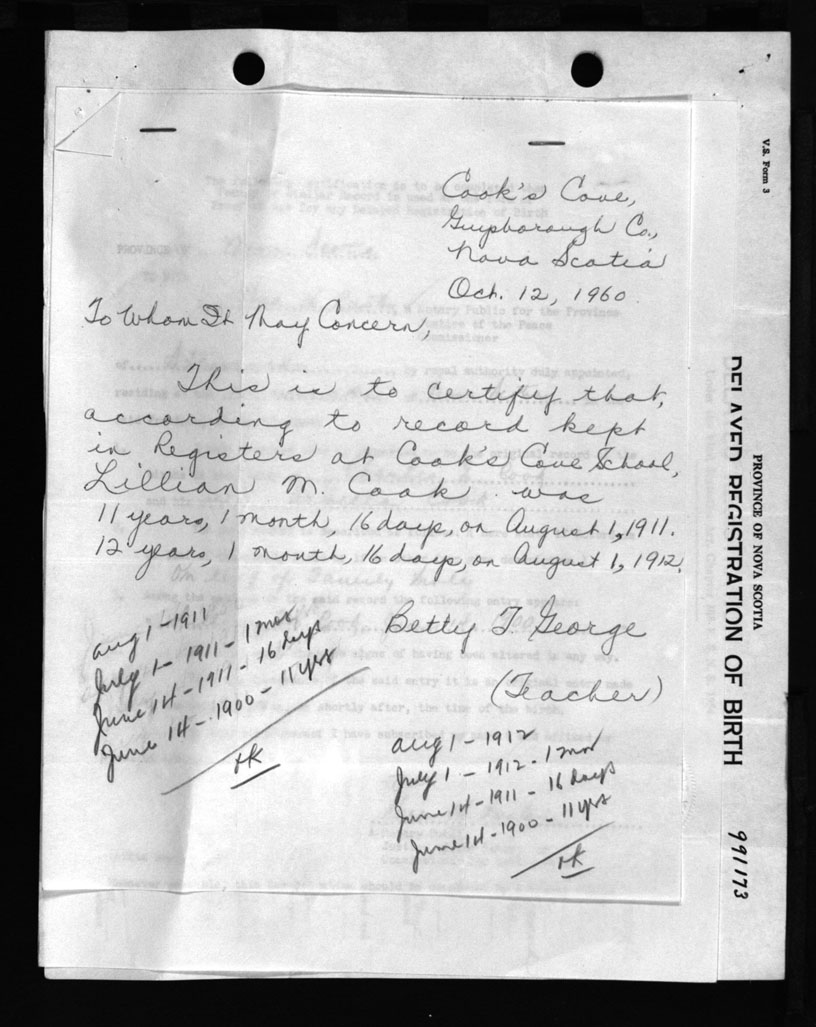 Cook's Cove,
Guysborough Co.,
Nova Scotia
Oct. 12, 1960.
To Whom It May Concern,
This is to certify that,
according to record kept
in Registers at Cook's Cove School,
Lillian M. Cook was
11 years, 1 month, 16 days, on August 1, 1911.
12 years, 1 month, 16 days, on August 1, 1912.
Betty T. George
(Teacher)
Aug 1 - 1911
July 1 - 1911 - 1 mos
June 14 - 1911 - 16 days
June 14 - 1900 - 11 yrs
Aug 1 - 1912
July 1 - 1912 - 1 mos
June 14 - 1911 - 16 days
June 14 - 1900 - 11 yrs
V.S. Form 3
PROVINCE OF NOVA SCOTIA
DELAYED REGISTRATION OF BIRTH
991173